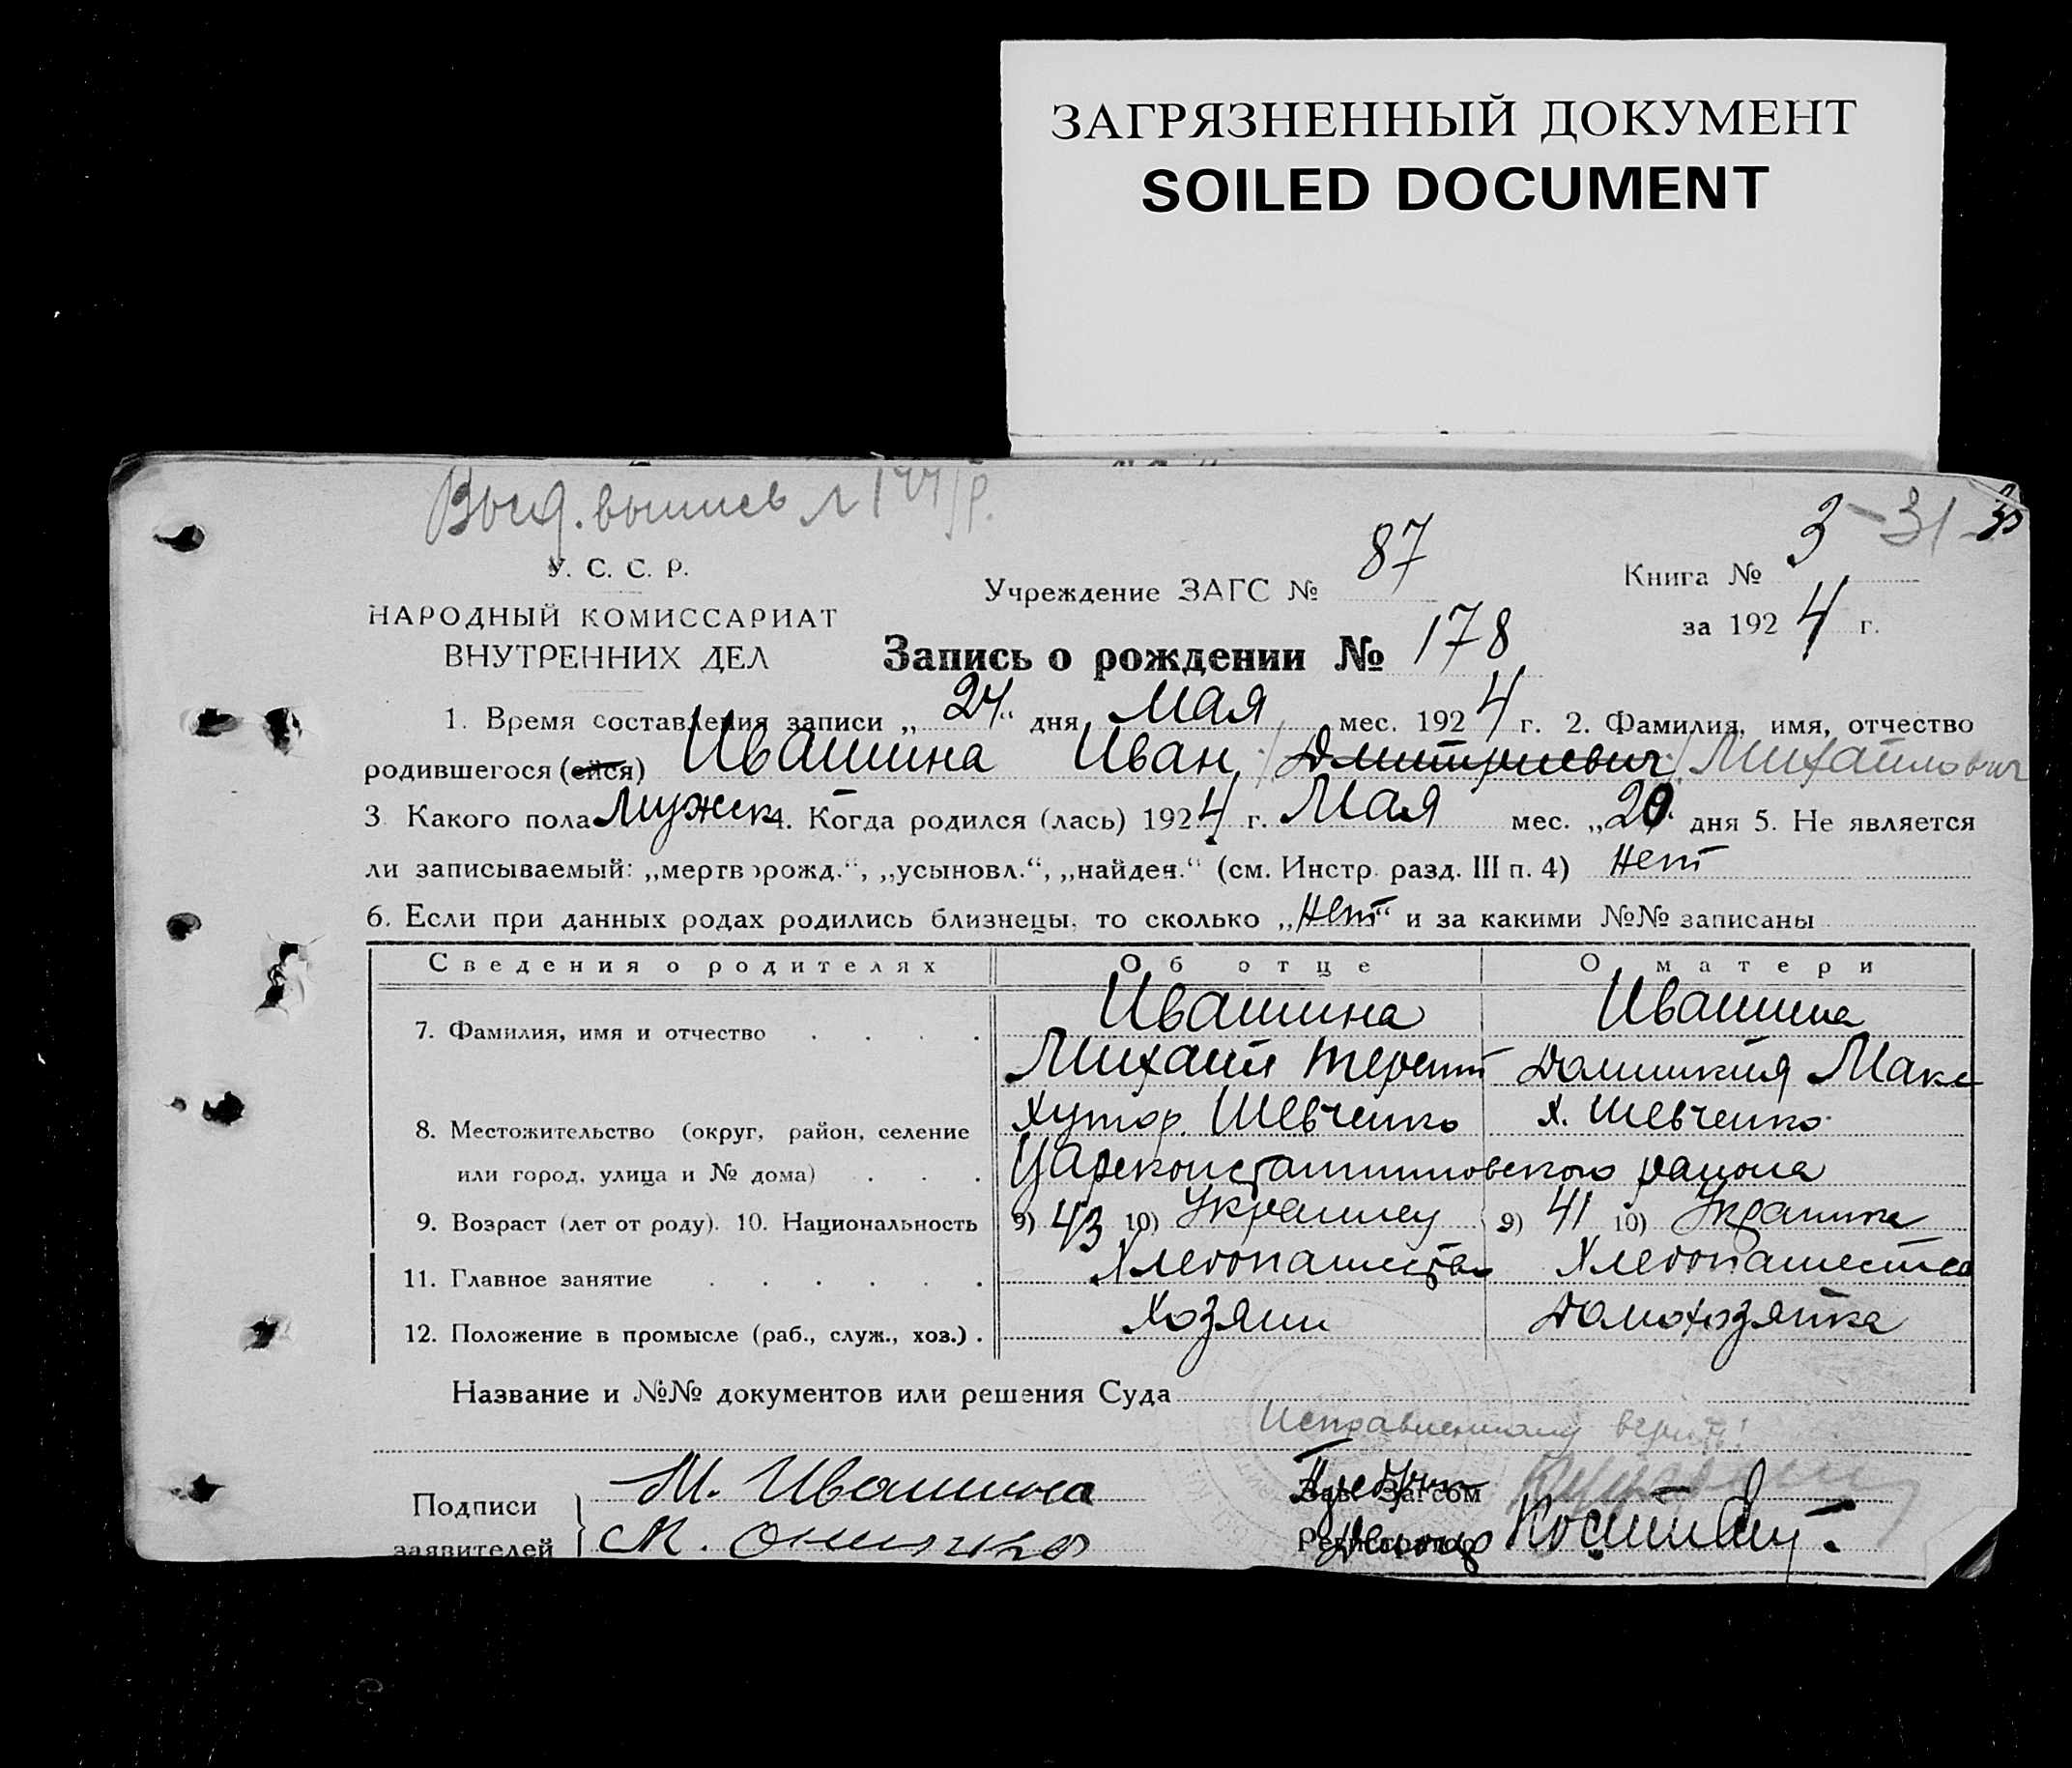 ЗАГРЯЗНЕННЫЙ ДОКУМЕНТ
SOILED DOCUMENT
Выд. выпись
3 - 31
У. С. С. Р.
НАРОДНЫЙ КОМИССАРИАТ
ВНУТРЕННИХ ДЕЛ
Учреждение ЗАГС № 87
Книга № 3
за 1924 г.
Запись о рождении № 178
1. Время составления записи „24“ дня Мая мес. 1924 г. 2. Фамилия, имя, отчество
родившегося (ейся) Ивашина Иван /Дмитриевич/ Михайлович
3 Какого пола Мужск 4. Когда родился (лась) 1924 г. Мая мес. „20 дня 5. Не является
ли записываемый: „мертворожд.“, „усыновл.“, „найден.“ (см. Инстр. разд. III п. 4) Нет
6. Если при данных родах родились близнецы, то сколько „Нет“ и за какими №№ записаны
Сведения о родителях Об отце О матери
7. Фамилия, имя и отчество . . . . Ивашина Ивашина
Михаил Терент Домникия Макс
8. Местожительство (округ, район, селение Хутор. Шевченко Х. Шевченко
или город, улица и № дома) . . . Цареконстантиновского района
9. Возраст (лет от роду). 10. Национальность 9) 43 10) Украинец 9) 41 10) Украинка
11. Главное занятие . . . . . . Хлебопашество Хлебопашество
12. Положение в промысле (раб., служ., хоз.) . Хозяин Домохозяйка
Название и №№ документов или решения Суда
Исправленному верить!
Подписи М. Ивашина Зав. Загсом
заявителей М. Регистратор